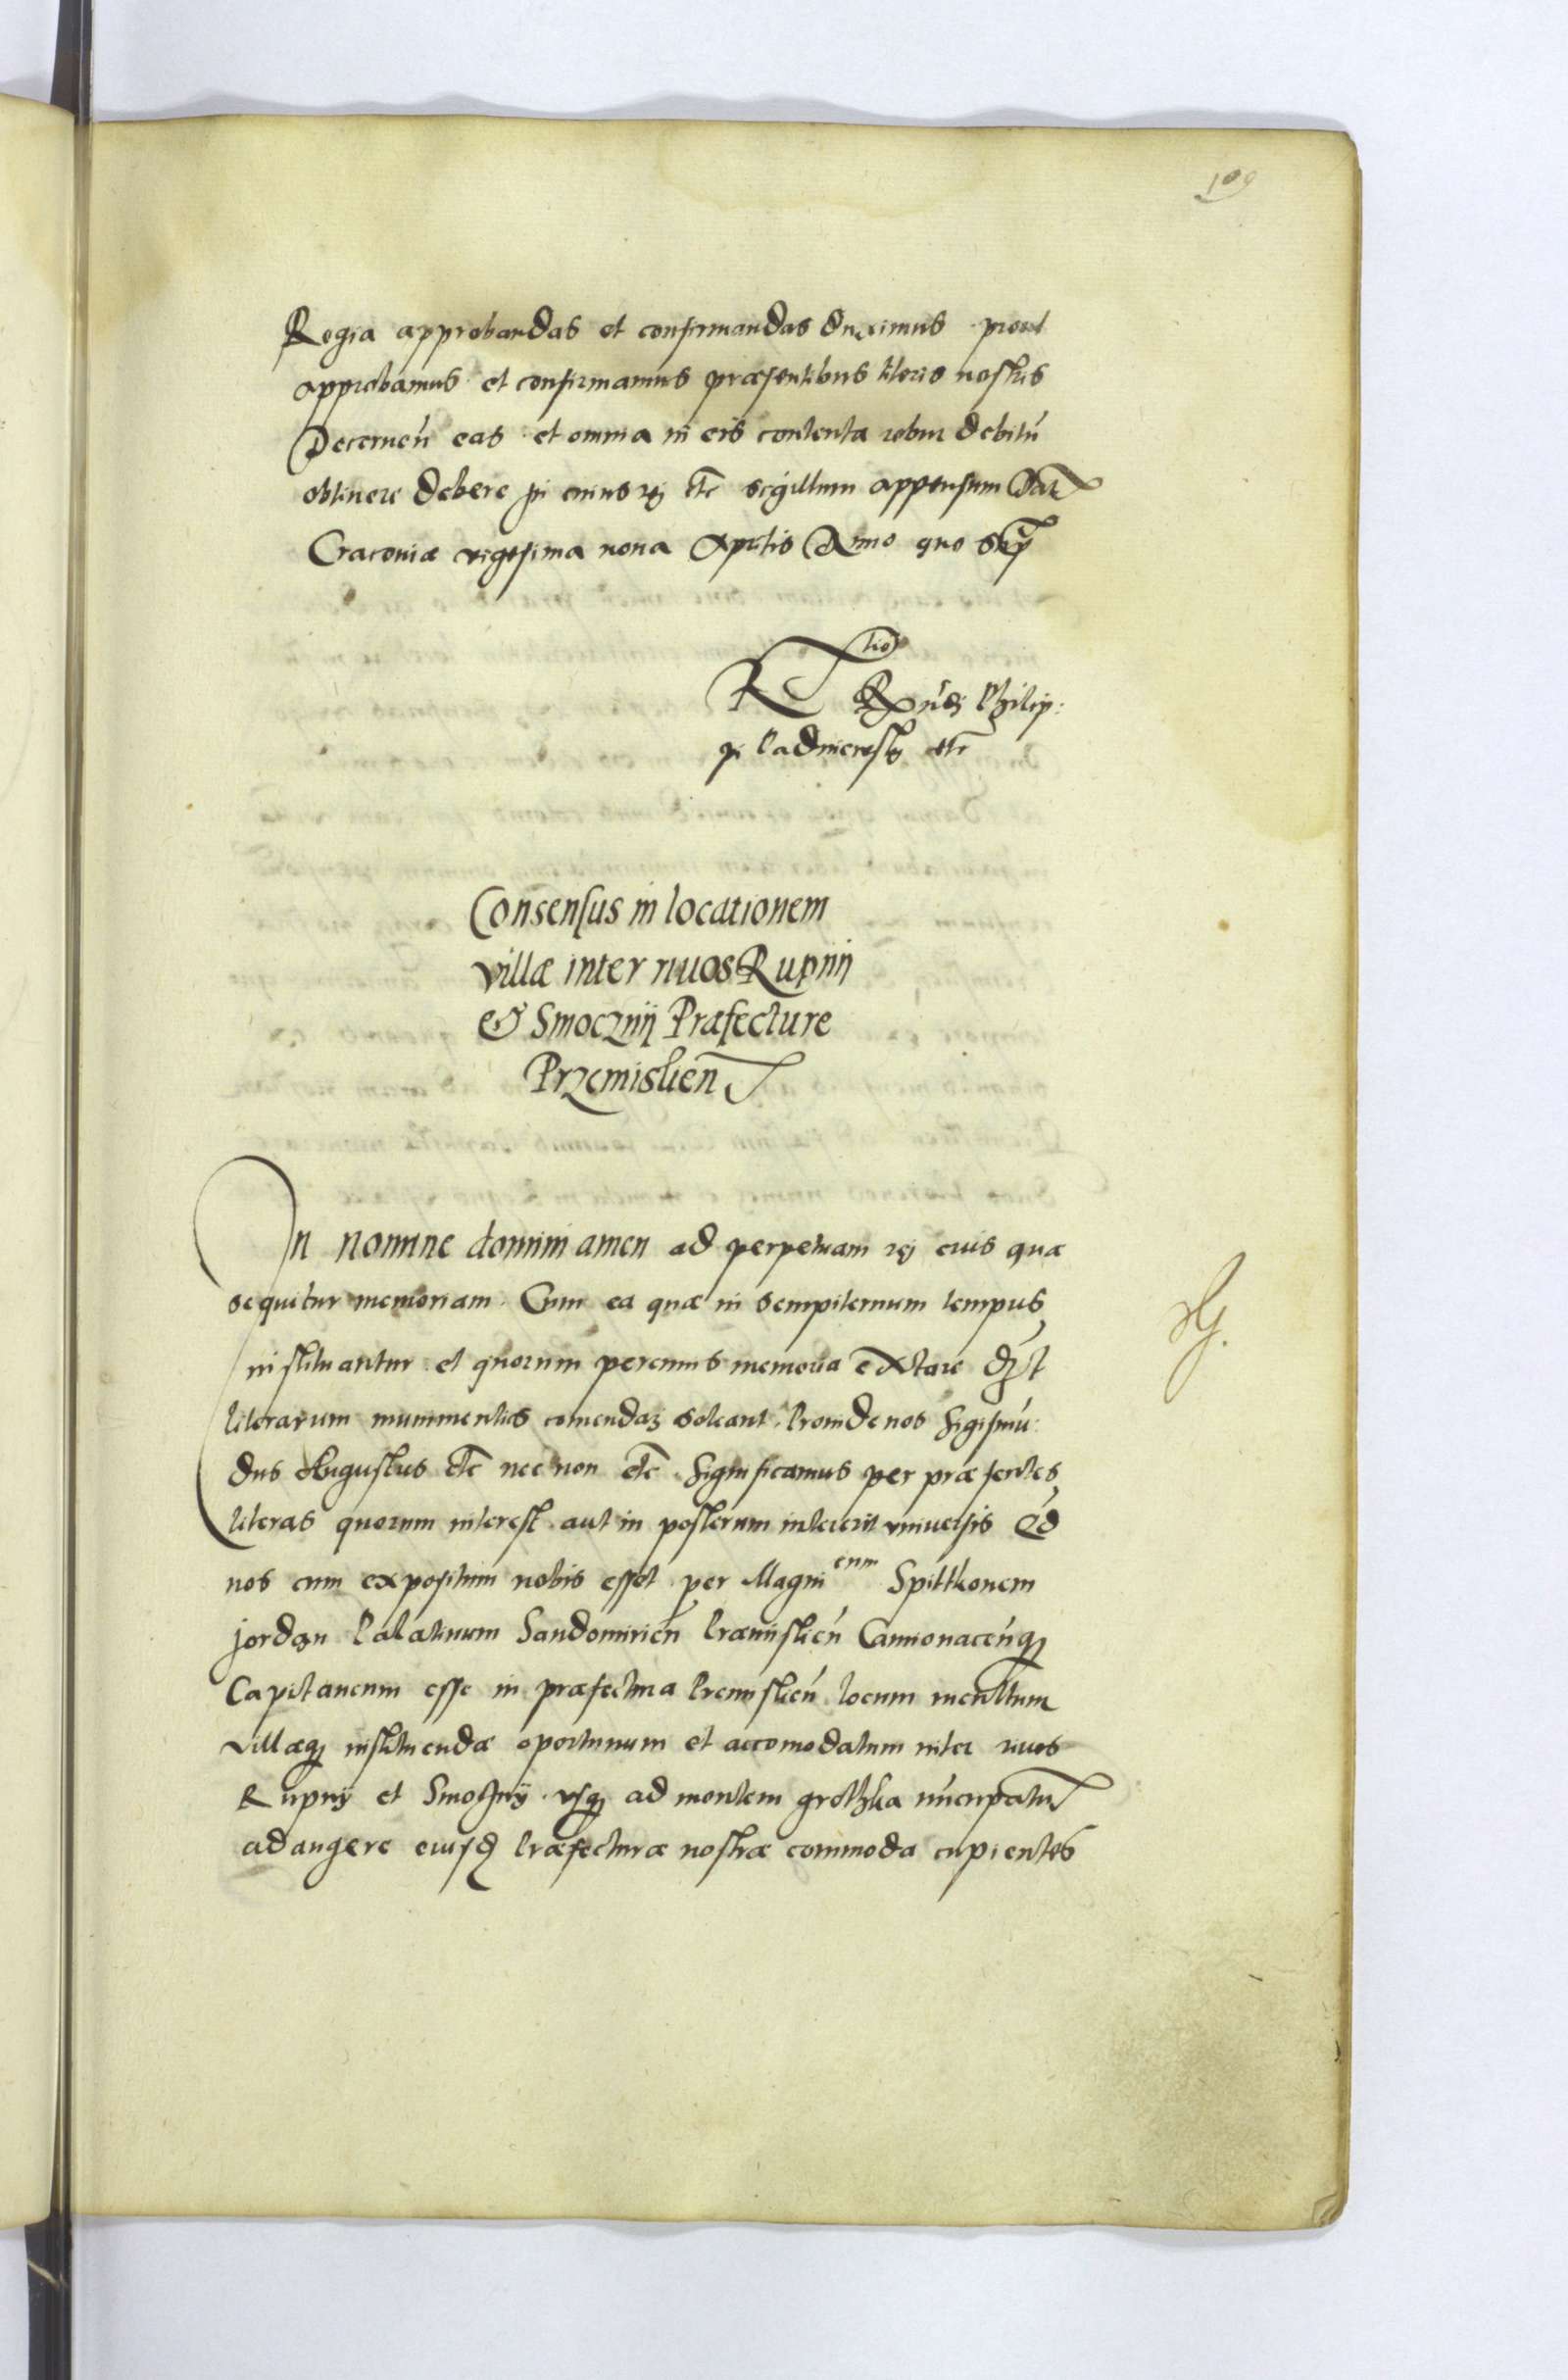 109
Regia approbandas et confirmandas duximus prout
approbamus et confirmamus præsentibus literis nostris
Decernen̄ eas et omnia in eis contenta robur debitū
obtinere debere in cuius rej etc̄ sigillum appensum Dat
Cracoviæ vigesima nona Aprilis Anno quo sup̄
Rtio Rn̄dj Philip:
pj Padniewskj etc̄
Consensus in locationem
villæ inter riuos Rupnij
et Smocznij Præfecture
Przemislien
In nomine domini amen ad perpetuam rej euis quæ
sequitur memoriam. Cum ea quæ in sempiternum tempus
instituantur et quorum perennis memoria extare
literarum munimentis comendarj soleant. Proinde nos Sigismū
dus Augustus etc̄ nec non etc̄ Significamus per præsentes
literas quorum interest aut in posterum intererit vniuersis Qd
nos cum expositum nobis esset per Magnicum Spitkonem
Jordan Palatinum Sandomirien̄ Præmislien̄ Camionacen̄q
Capitaneum esse in præfectura Premislien̄ locum incultum
villæq instituendæ oportunum et accomodatum inter riuos
Rupnÿ et Smocznÿ vsq ad montem grothka nūcupatu
adaugere eiusd Præfecturæ nostræ commoda cupientes